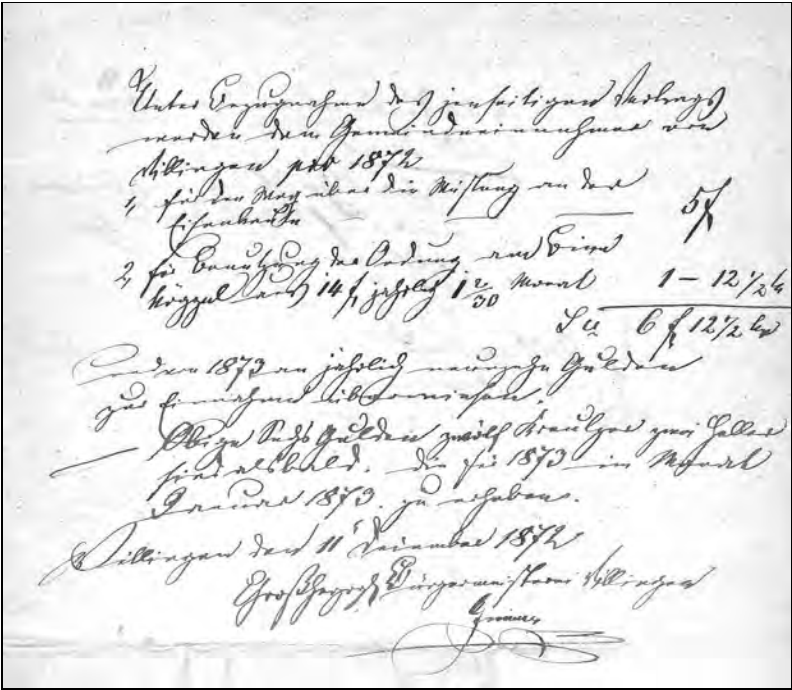 Unter Bezugnahme des jenseitigen Vertrags
werden dem Gemeindeeinnehmer von
Villingen pro 1872
1, für den Weg über die Wüstung an der
Eisenkaute 5 f
2, für Benutzung der Oedung am
aus 14 f jährlich 1 2/30 Monat 1 – 12 1/2 kr
Su 6 f 12 1/2 kr
und von 1873 an jährlich neunzehn Gulden
zur Einnahme überwiesen.
Obige Sechs Gulden zwölf Kreutzer zwei Heller
sind alsbald. die für 1873 im Monat
Januar 1873. zu erheben.
Villingen den 11 Dezember 1872
Großherzogl Bürgermeisterei Villingen